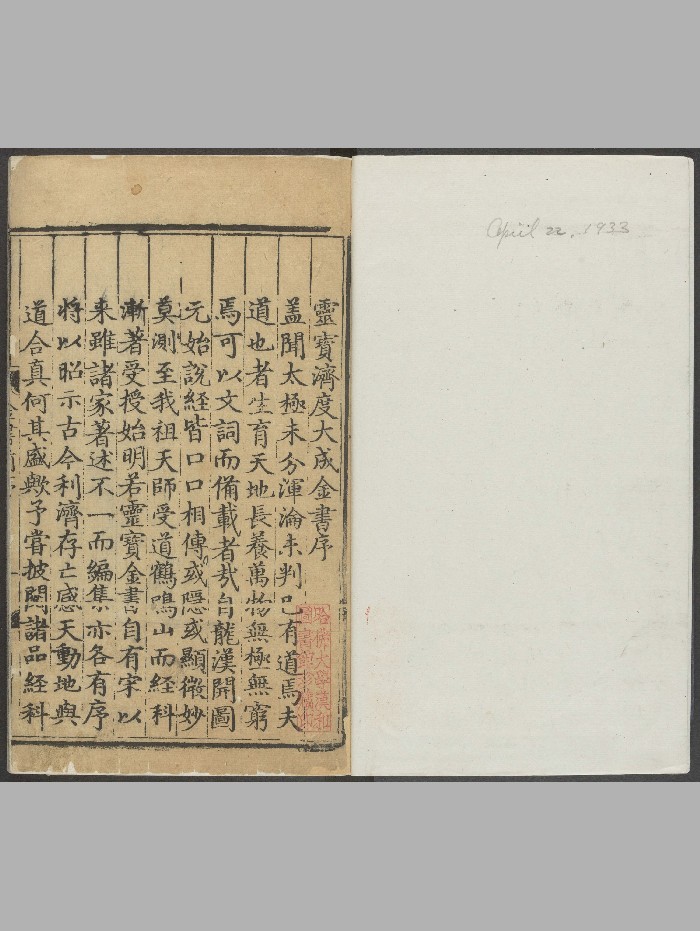 April 22, 1933
靈寶濟度大成金書序
盖聞太極未分渾淪未判已有道焉夫
道也者生育天地長養萬物無極無窮
焉可以文詞而俻載者㢤自龍漢開圖
元始說經皆口口相傳或隱或顯微妙
莫測至我祖天師受道鶴鳴山而經科
漸著受授始明若靈寶金書自有宋以
来雖諸家著述不一而編集亦各有序
將以昭示古今利濟存亡感天動地與
道合真何其盛歟予嘗披閱諸品經科
哈佛大學漢和
圖書館珍藏印